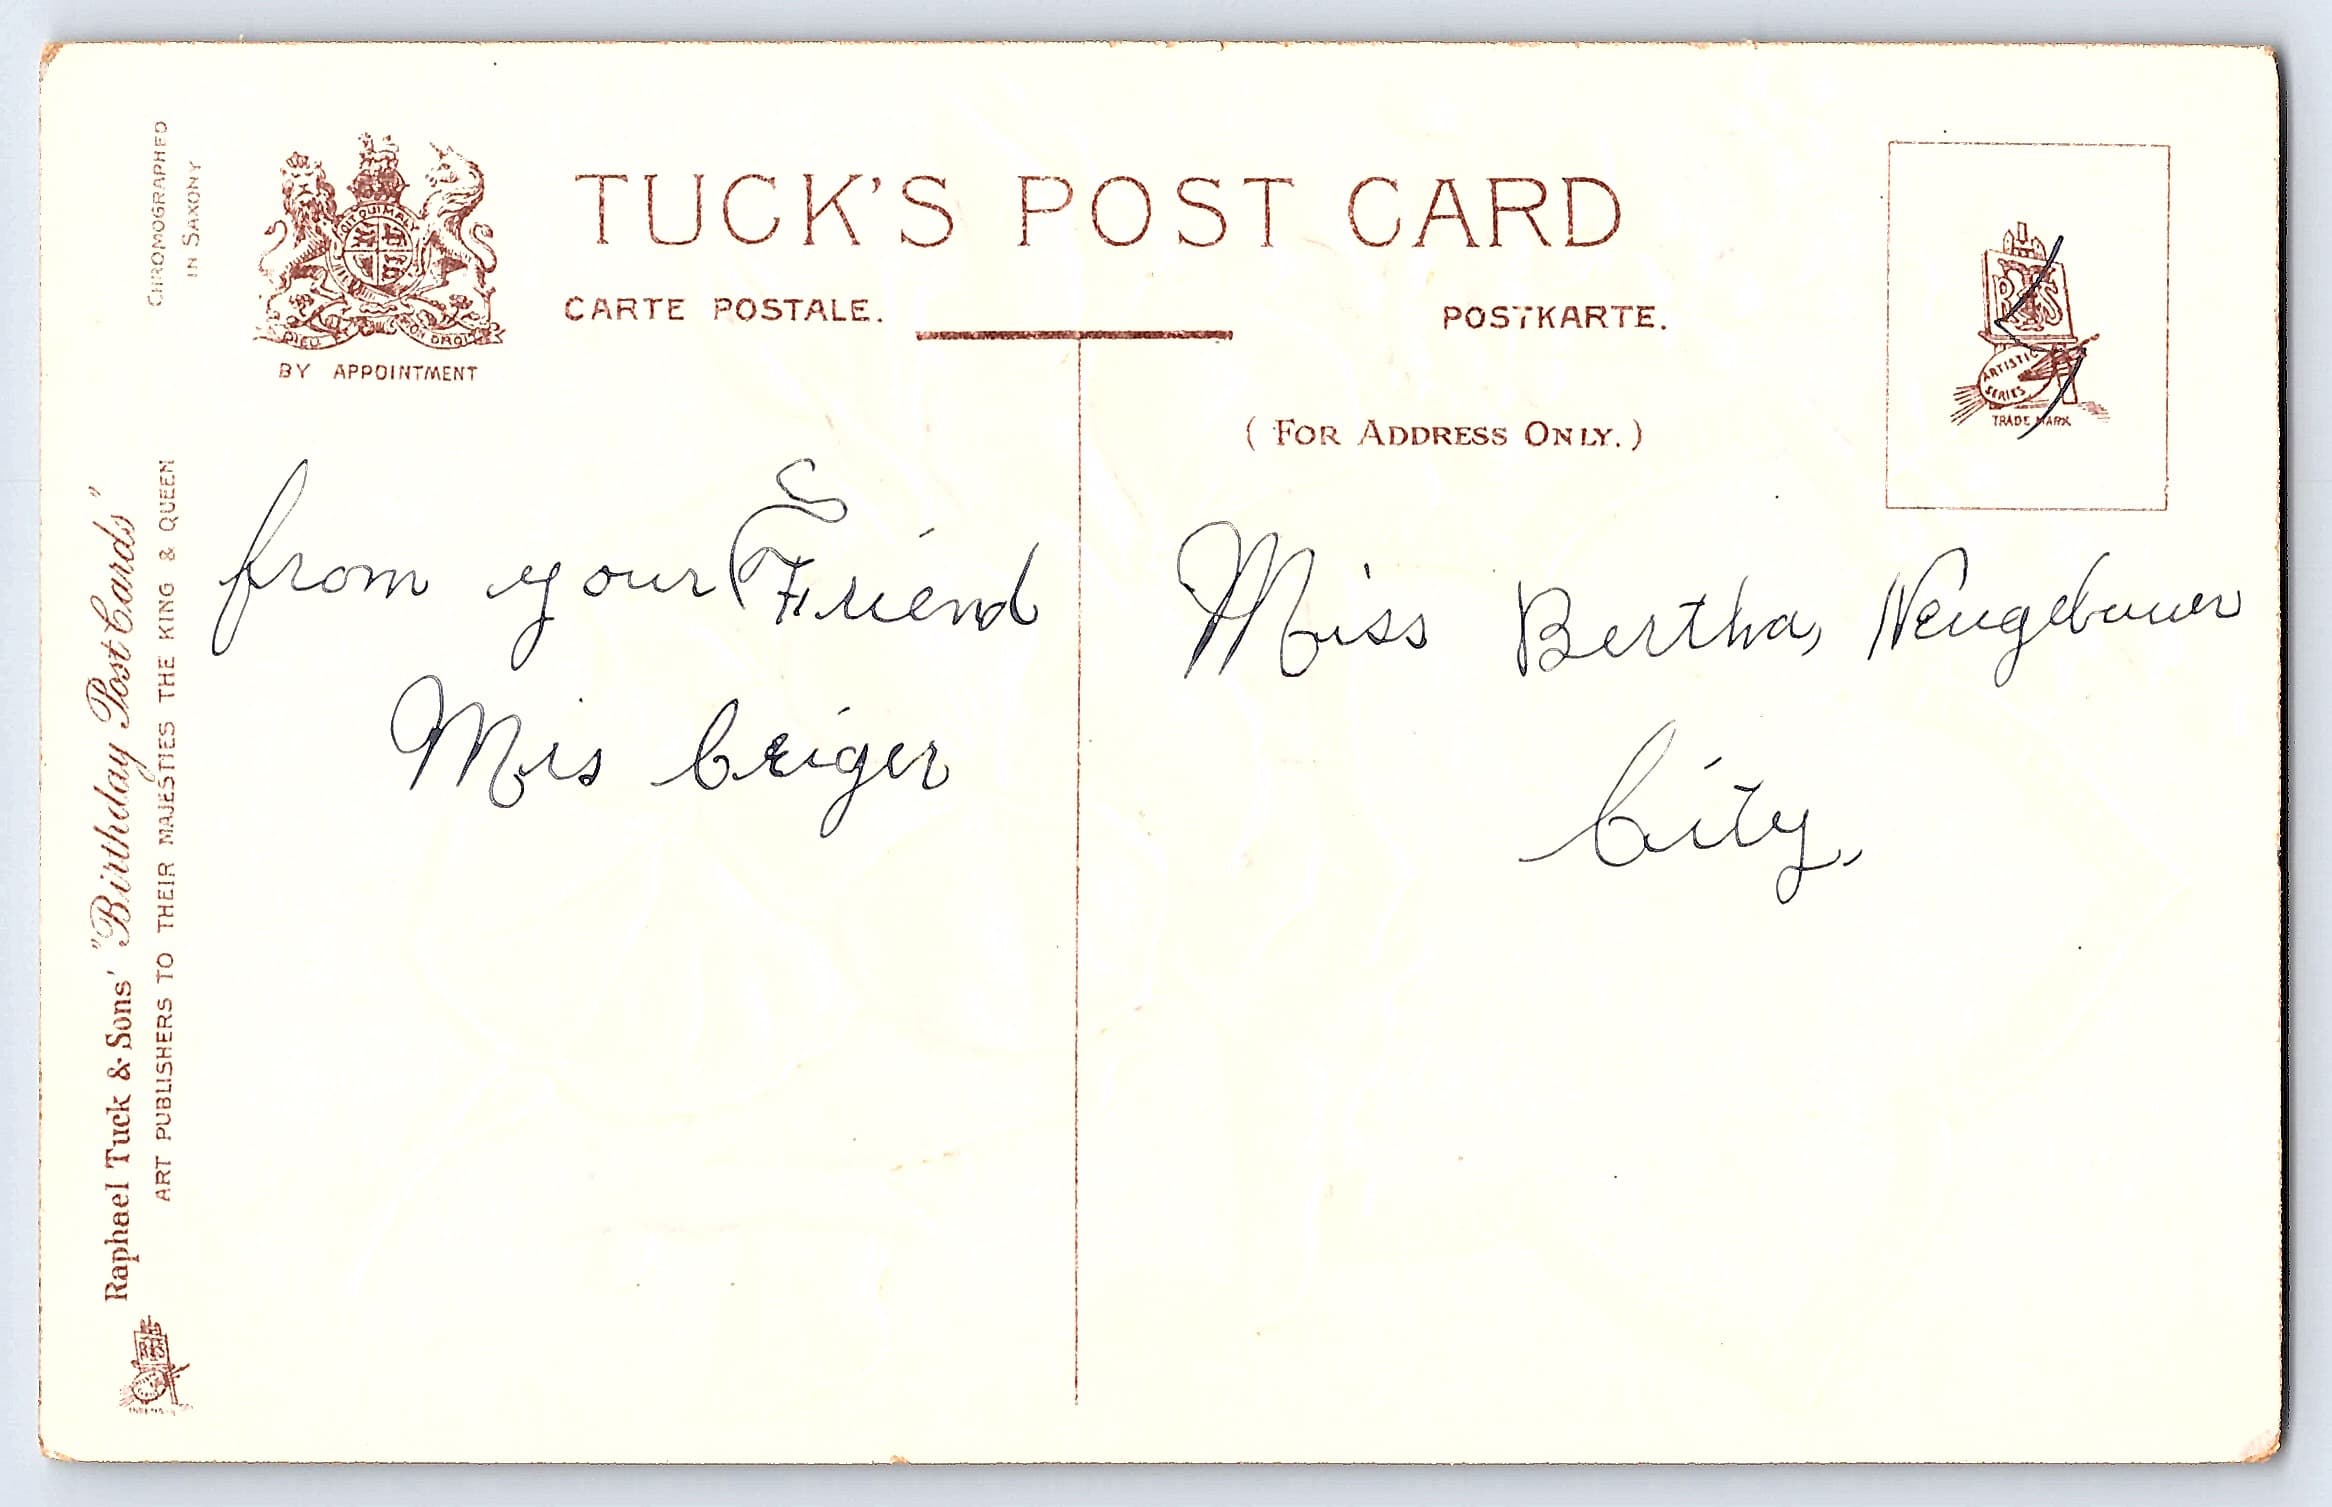 CHROMOGRAPHED
IN SAXONY
TUCK'S POST CARD
CARTE POSTALE.
POSTKARTE.
DIEU ET MON DROIT
BY APPOINTMENT
(FOR ADDRESS ONLY.)
R T S
ARTISTIC
SERIES
TRADE MARK
from your Friend
Mrs Geiger
Miss Bertha, Neugebauer
City,
Raphael Tuck & Sons' "Birthday Post Cards"
ART PUBLISHERS TO THEIR MAJESTIES THE KING & QUEEN